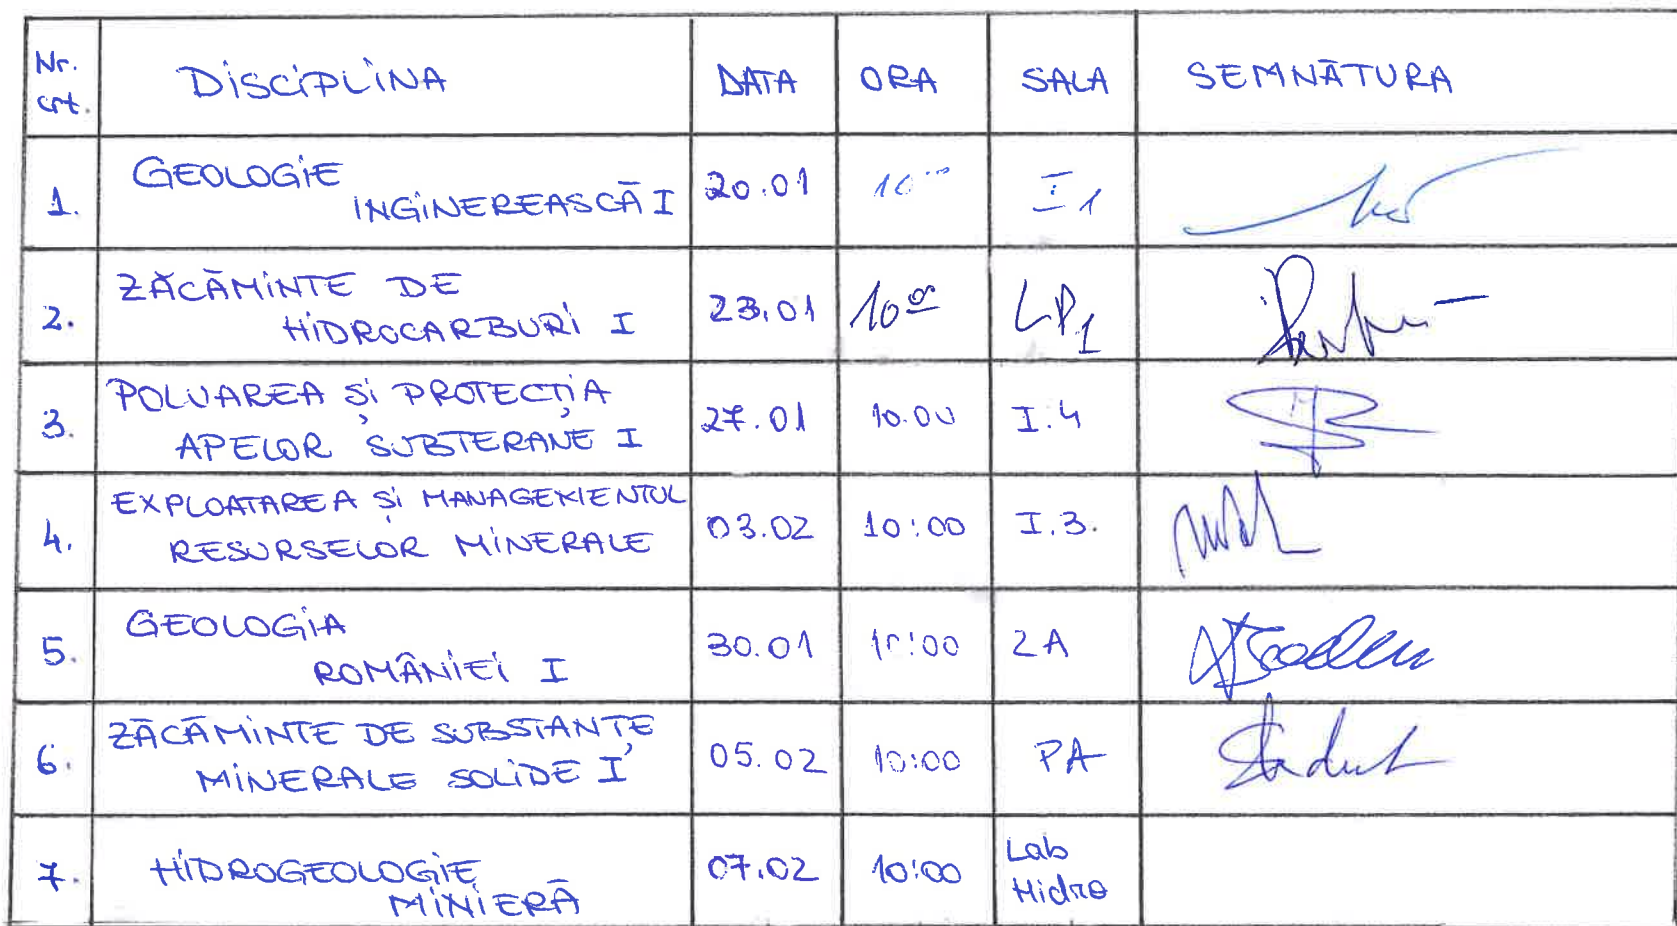 Nr. crt. DISCIPLINA DATA ORA SALA SEMNĂTURA
1. GEOLOGIE INGINEREASCĂ I 20.01 10⁰⁰ I1
2. ZĂCĂMINTE DE HIDROCARBURI I 23.01 10⁰⁰ LP1
3. POLUAREA ȘI PROTECȚIA APELOR SUBTERANE I 27.01 10.00 I.4
4. EXPLOATAREA ȘI MANAGEMENTUL RESURSELOR MINERALE 03.02 10:00 I.3.
5. GEOLOGIA ROMÂNIEI I 30.01 10:00 2A
6. ZĂCĂMINTE DE SUBSTANȚE MINERALE SOLIDE I 05.02 10:00 PA
7. HIDROGEOLOGIE MINIERĂ 07.02 10:00 Lab Hidro